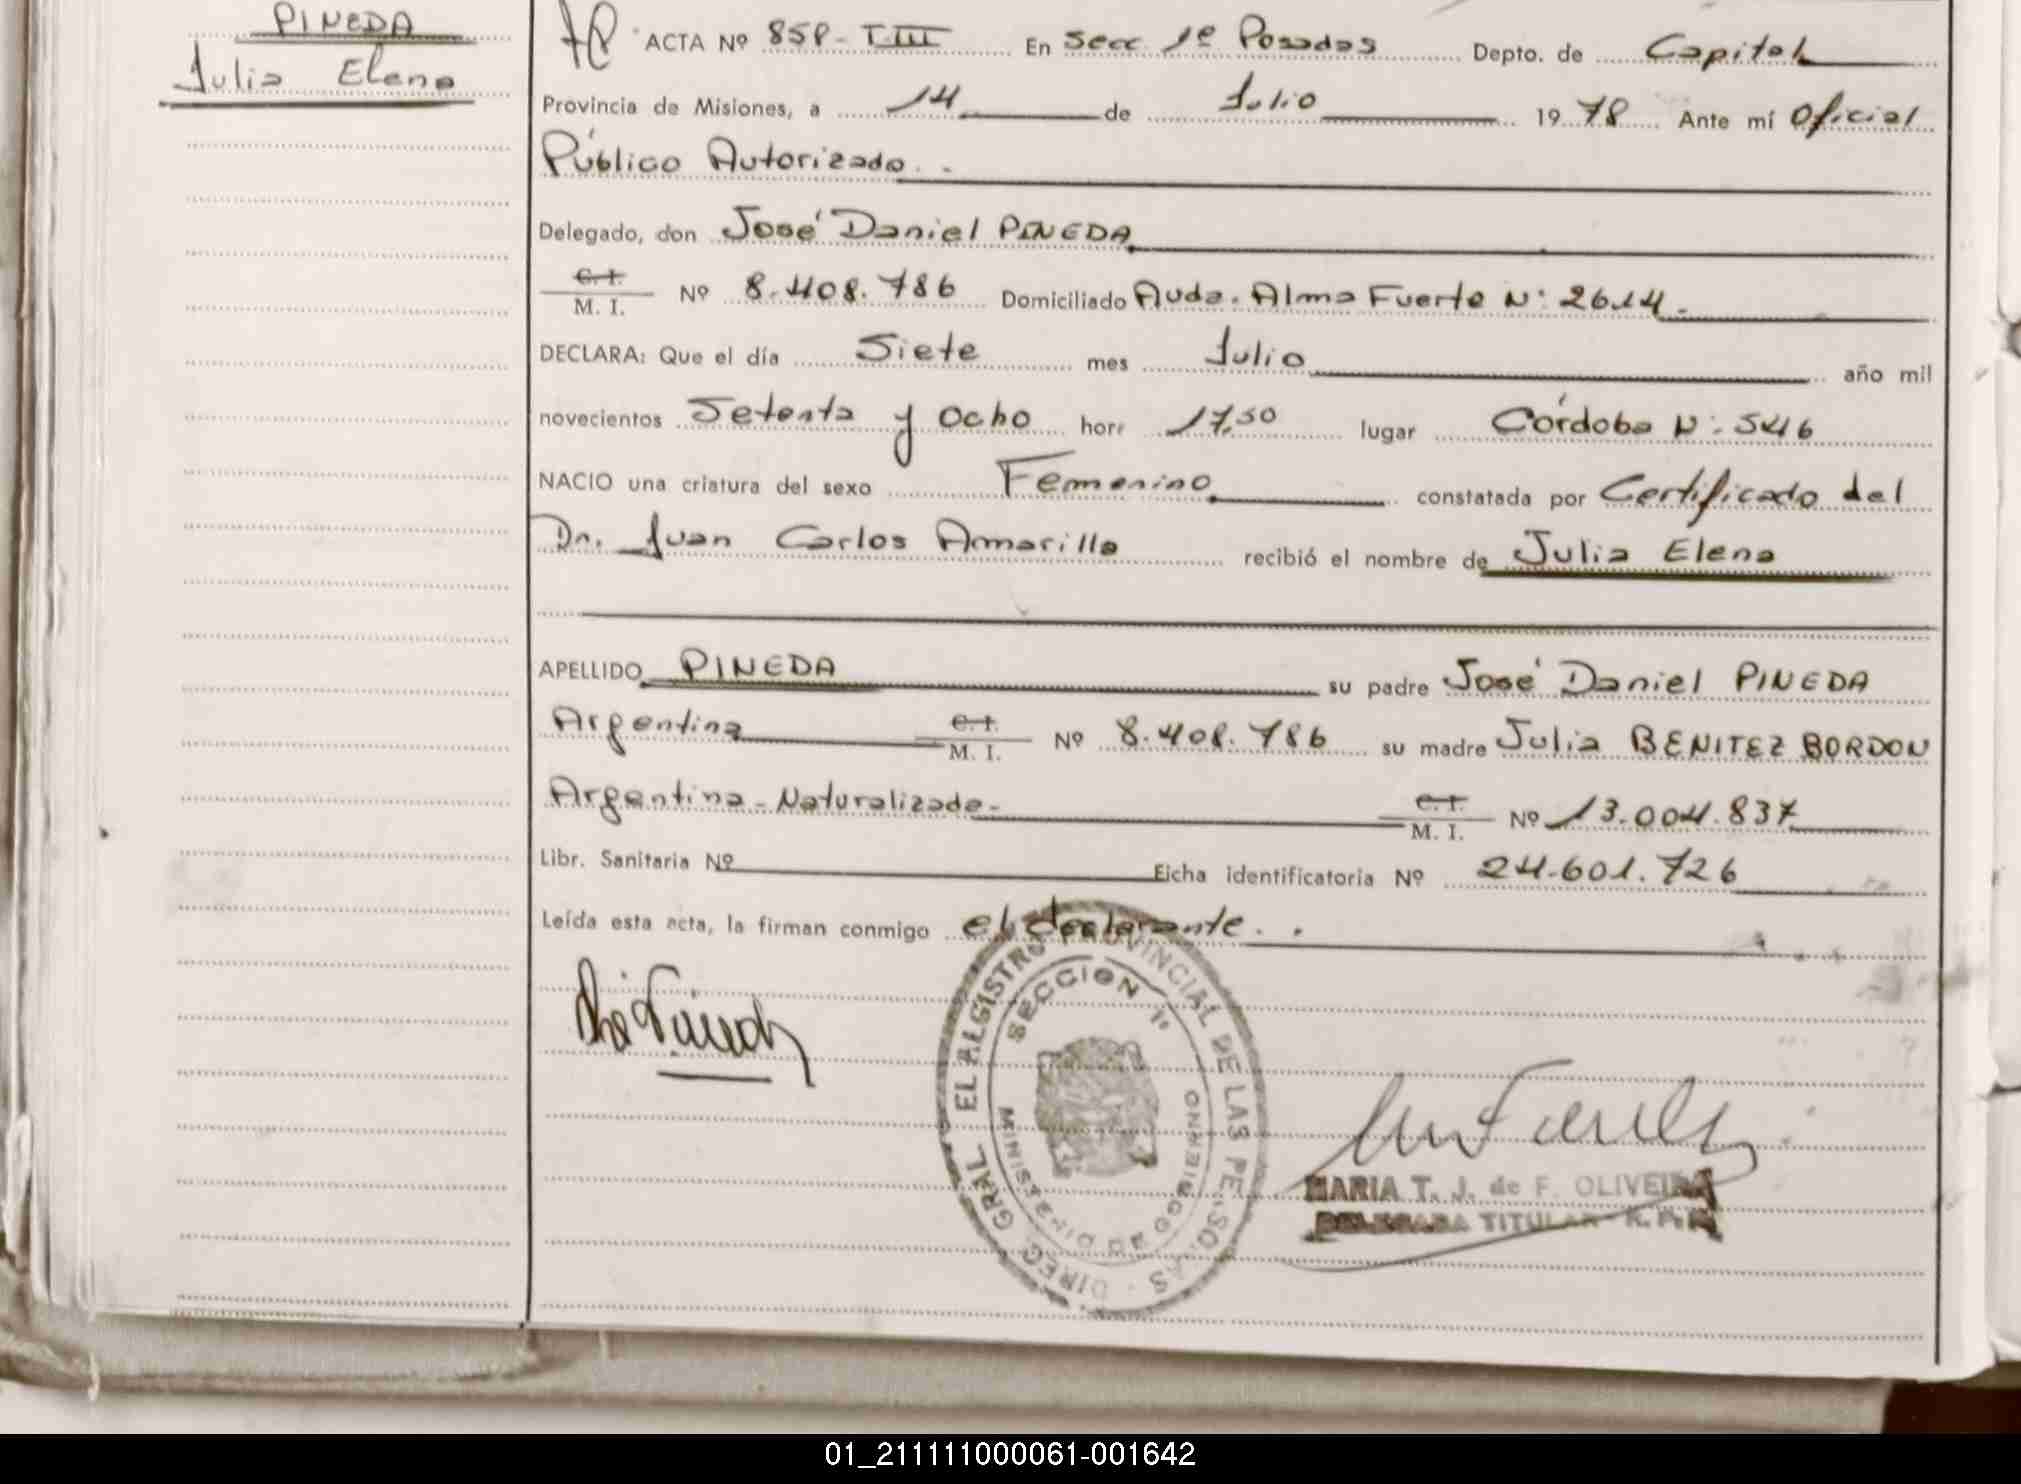 PINEDA
Julia Elena
ACTA Nº 858-T III En Secc 1º Posadas Depto. de Capital
Provincia de Misiones, a 14 de Julio 1978 Ante mí Oficial
Público Autorizado.-
Delegado, don José Daniel PINEDA
C. I.
M. I. Nº 8.408.786 Domiciliado Avda. Alma Fuerte Nº 2614.-
DECLARA: Que el día Siete mes Julio año mil
novecientos Setenta y Ocho hora 17,50 lugar Córdoba Nº 546
NACIO una criatura del sexo Femenino constatada por Certificado del
Dr. Juan Carlos Amarilla recibió el nombre de Julia Elena
APELLIDO PINEDA su padre José Daniel PINEDA
Argentina C. I. M. I. Nº 8.408.786 su madre Julia BENITEZ BORDON
Argentina-Naturalizada- C. I. M. I. Nº 13.004.837
Libr. Sanitaria Nº Ficha identificatoria Nº 24.601.726
Leída esta acta, la firman conmigo el declarante..
SECCION 1º
DIREC. GRAL. REGISTRO PROVINCIAL DE LAS PERSONAS
MINISTERIO DE GOBIERNO
MARIA T. J. de F. OLIVEIRA
DELEGADA TITULAR R. P. P.
01_211111000061-001642